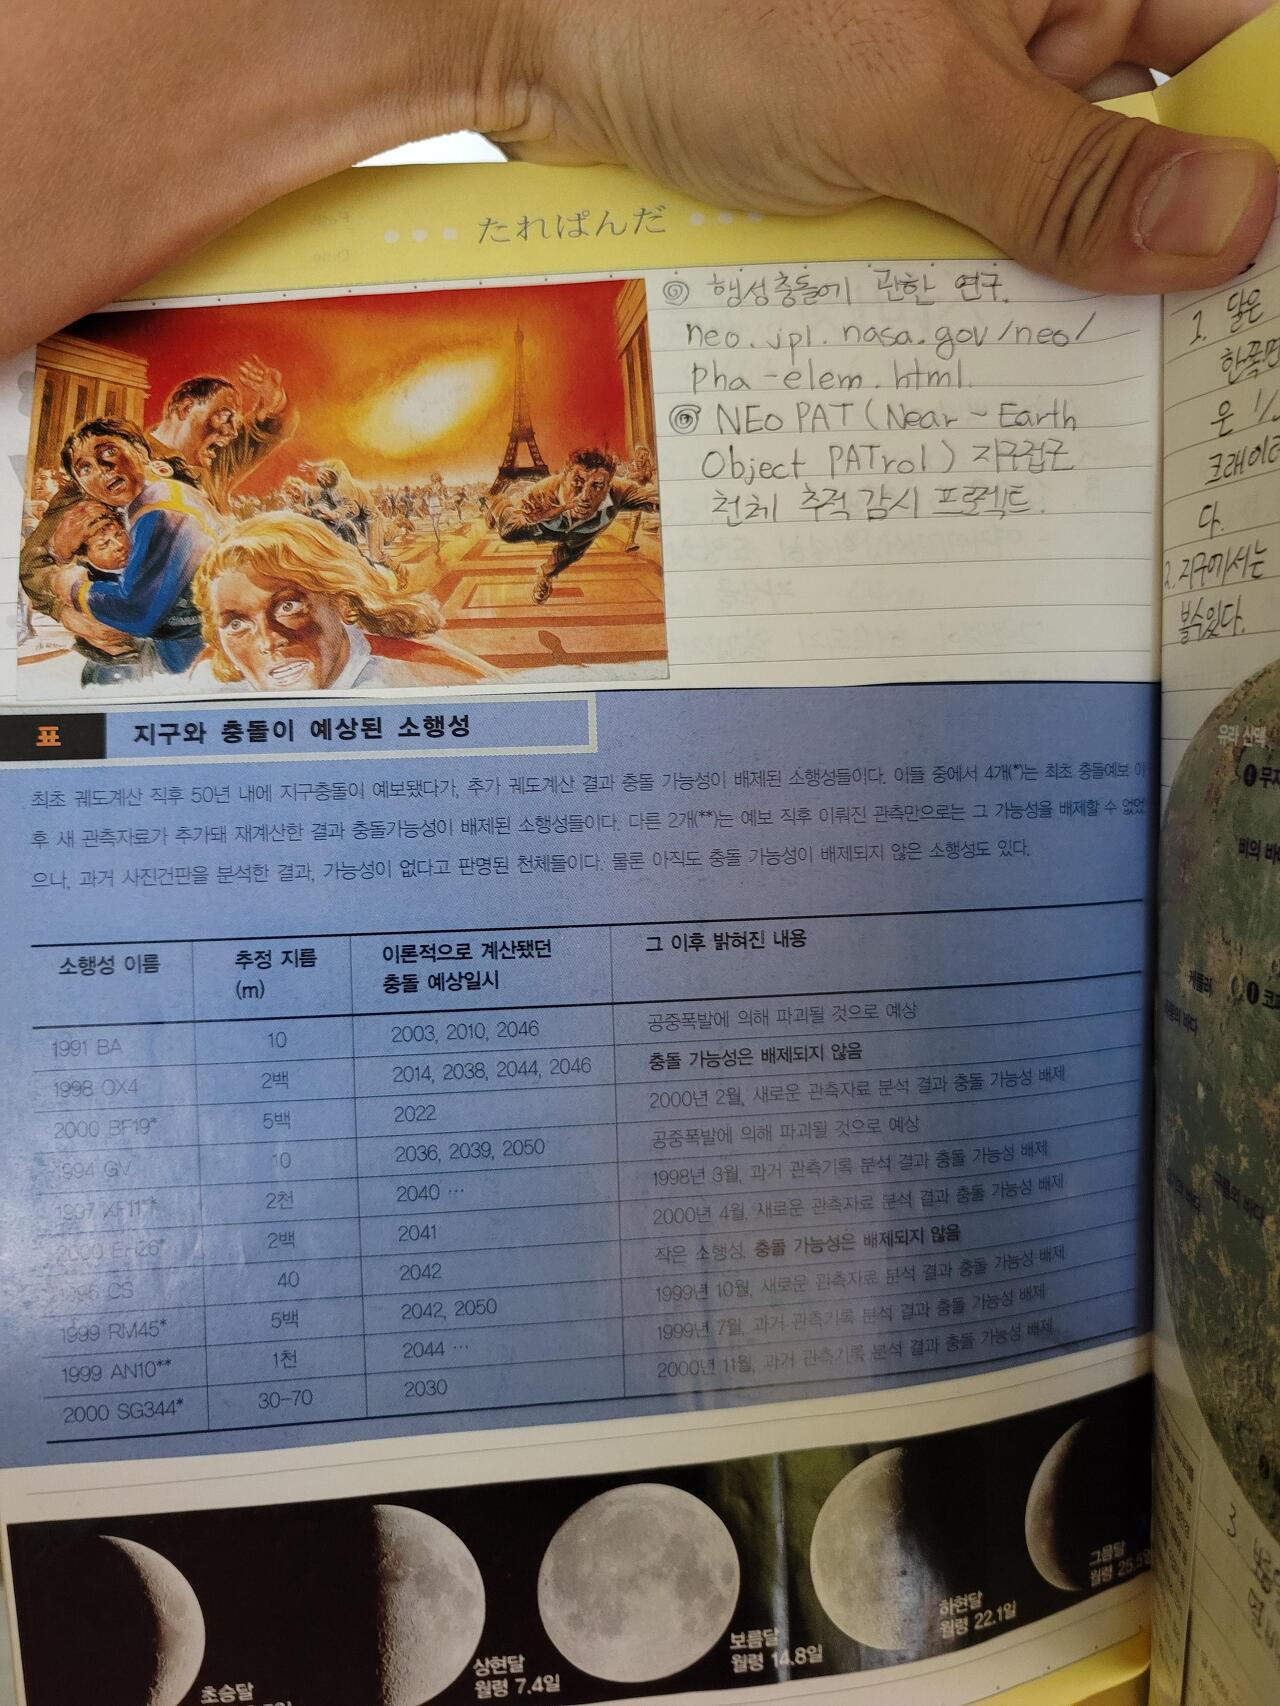 たれぱんだ
◎ 행성충돌에 관한 연구.
neo.jpl.nasa.gov/neo/
pha-elem.html.
◎ NEO PAT (Near-Earth
Object PATrol) 지구접근
천체 추적 감시 프로젝트.
표 지구와 충돌이 예상된 소행성
최초 궤도계산 직후 50년 내에 지구충돌이 예보됐다가, 추가 궤도계산 결과 충돌 가능성이 배제된 소행성들이다. 이들 중에서 4개(*)는 최초 충돌예보 이
후 새 관측자료가 추가돼 재계산한 결과 충돌가능성이 배제된 소행성들이다. 다른 2개(**)는 예보 직후 이뤄진 관측만으로는 그 가능성을 배제할 수 없었
으나, 과거 사진건판을 분석한 결과, 가능성이 없다고 판명된 천체들이다. 물론 아직도 충돌 가능성이 배제되지 않은 소행성도 있다.
소행성 이름 추정 지름 (m) 이론적으로 계산됐던 충돌 예상일시 그 이후 밝혀진 내용
1991 BA 10 2003, 2010, 2046 공중폭발에 의해 파괴될 것으로 예상
1998 OX4 2백 2014, 2038, 2044, 2046 충돌 가능성은 배제되지 않음
2000 BF19* 5백 2022 2000년 2월, 새로운 관측자료 분석 결과 충돌 가능성 배제
1994 GV 10 2036, 2039, 2050 공중폭발에 의해 파괴될 것으로 예상
1997 XF11** 2천 2040 … 1998년 3월, 과거 관측기록 분석 결과 충돌 가능성 배제
2000 EH26* 2백 2041 2000년 4월, 새로운 관측자료 분석 결과 충돌 가능성 배제
1995 CS 40 2042 작은 소행성, 충돌 가능성은 배제되지 않음
1999 RM45* 5백 2042, 2050 1999년 10월, 새로운 관측자료 분석 결과 충돌 가능성 배제
1999 AN10** 1천 2044 … 1999년 7월, 과거 관측기록 분석 결과 충돌 가능성 배제
2000 SG344* 30-70 2030 2000년 11월, 과거 관측기록 분석 결과 충돌 가능성 배제
초승달
상현달
월령 7.4일
보름달
월령 14.8일
하현달
월령 22.1일
그믐달
월령 25.5일
1. 달은
한쪽면
은 1/
크레이터
다.
2. 지구에서는
볼수있다.
유라 산맥
케플러
구름의 바다
3.